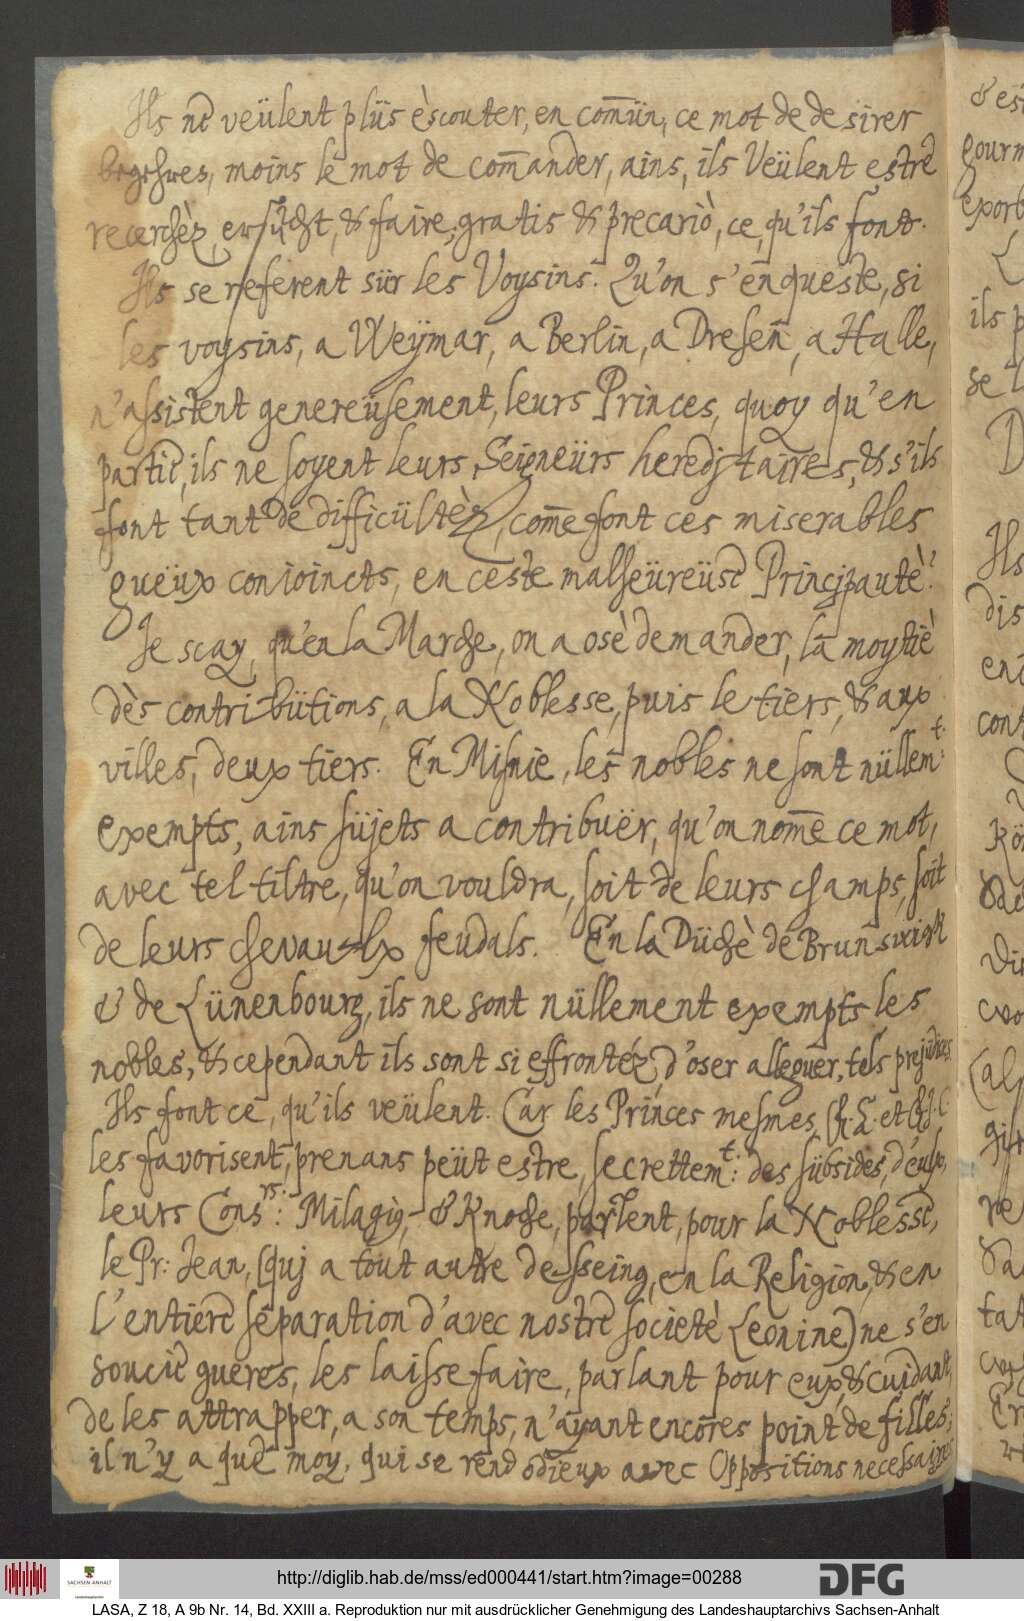 Ils ne veülent plüs èscouter, en com̄ün, ce mot de desirer
begehres, moins le mot de com̄ander, ains, ils veülent estre
recerchèz, ersücht, & faire, gratis & precariò, ce, qu'ils font.
Ils se referent sür les Voysins. Qu'on s'enqueste, si
les voysins, a Weÿmar, a Berlin, a Dresen, a Halle,
n'assistent genereüsement, leurs Princes, quoy qu'en
partie, ils ne soyent leurs, Seigneürs heredjtaires, & s'ils
font tant de difficültèz, com̄e font ces miserables
gueüx conioincts, en ceste malheüreüse Principautè?
Je scay, qu'en la Marche, on a osè demander, la moytiè
dès contribütions, a la Noblesse, puis le tiers, & aux
villes, deux tiers. En Misnie, les nobles ne sont nüllem.t:
exempts, ains süjets a contribuër, qu'on nom̄e ce mot,
avec tel tiltre, qu'on vouldra, soit de leurs champs, soit
de leurs chevaulx feudals. En la Düchè de Brunswigk
& de Lünenbourg, ils ne sont nüllement exempts les
nobles, & cependant ils sont si effrontéz, d'oser alleguer, tels prejüdices,
Ils font ce, qu'ils veülent. Car les Princes mesmes,
les favorisent, prenans peüt estre, secrettem.t: des sübsides, d'eulx,
leurs Cons.rs: Milagiy, & Knoche, parlent, pour la Noblesse,
le Pr: Jean, (quj a tout autre desseing, en la Religion, & en
l'entiere separation d'avec nostre societè Leonine) ne s'en
soucie gueres, les laisse faire, parlant pour eux, & cuidant,
de les attrapper, a son temps, n'ayant encores point de filles;
il n'y a que moy, qui se rend odieux avec Oppositions necessaires
http://diglib.hab.de/mss/ed000441/start.htm?image=00288
SACHSEN-ANHALT
DFG
LASA, Z 18, A 9b Nr. 14, Bd. XXIII a. Reproduktion nur mit ausdrücklicher Genehmigung des Landeshauptarchivs Sachsen-Anhalt